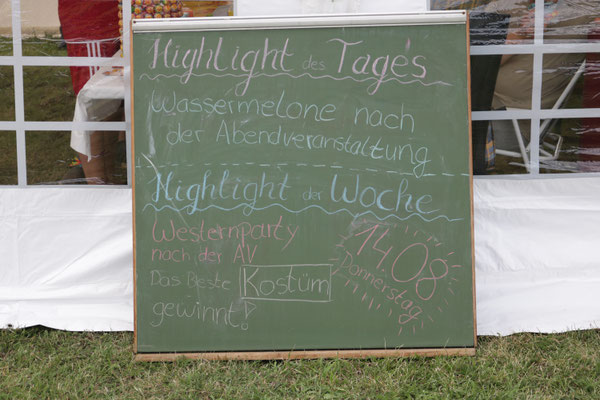 Highlight des Tages
Wassermelone nach
der Abendveranstaltung
Highlight der Woche
Westernparty
nach der AV
Das Beste Kostüm
gewinnt!
14.08
Donnerstag